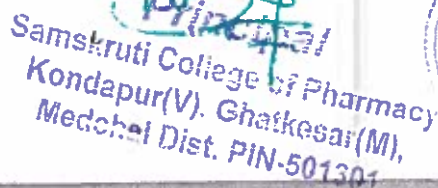 Principal
Samskruti College of Pharmacy
Kondapur(V). Ghatkesar(M),
Medchal Dist. PIN-501301